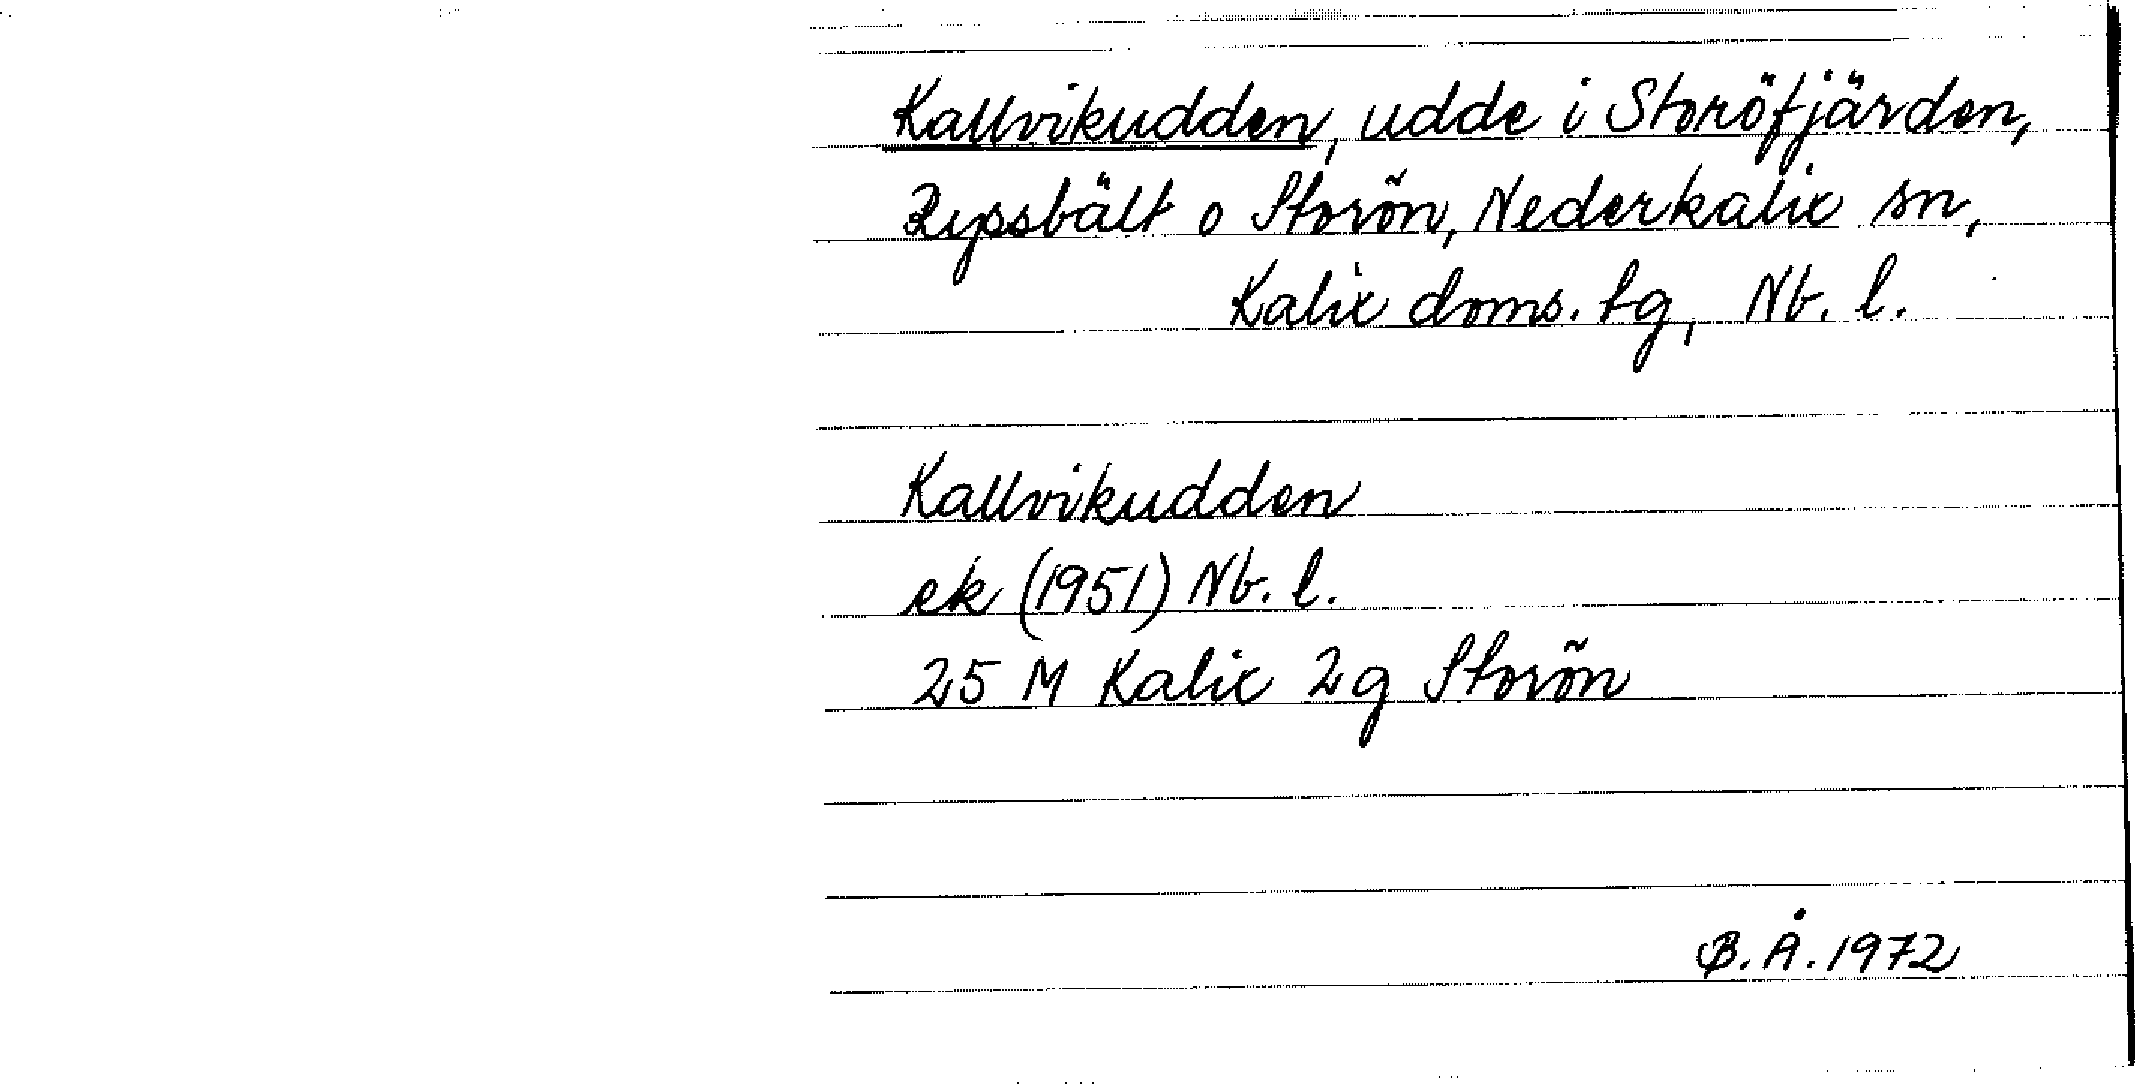 Kallvikudden, udde i Storöfjärden,
Ryssbält o Storön, Nederkalix sn,
Kalix doms. tg, Nb. l.
Kallvikudden
ek (1951) Nb. l.
25 M Kalix 2g Storön
B. Å. 1972